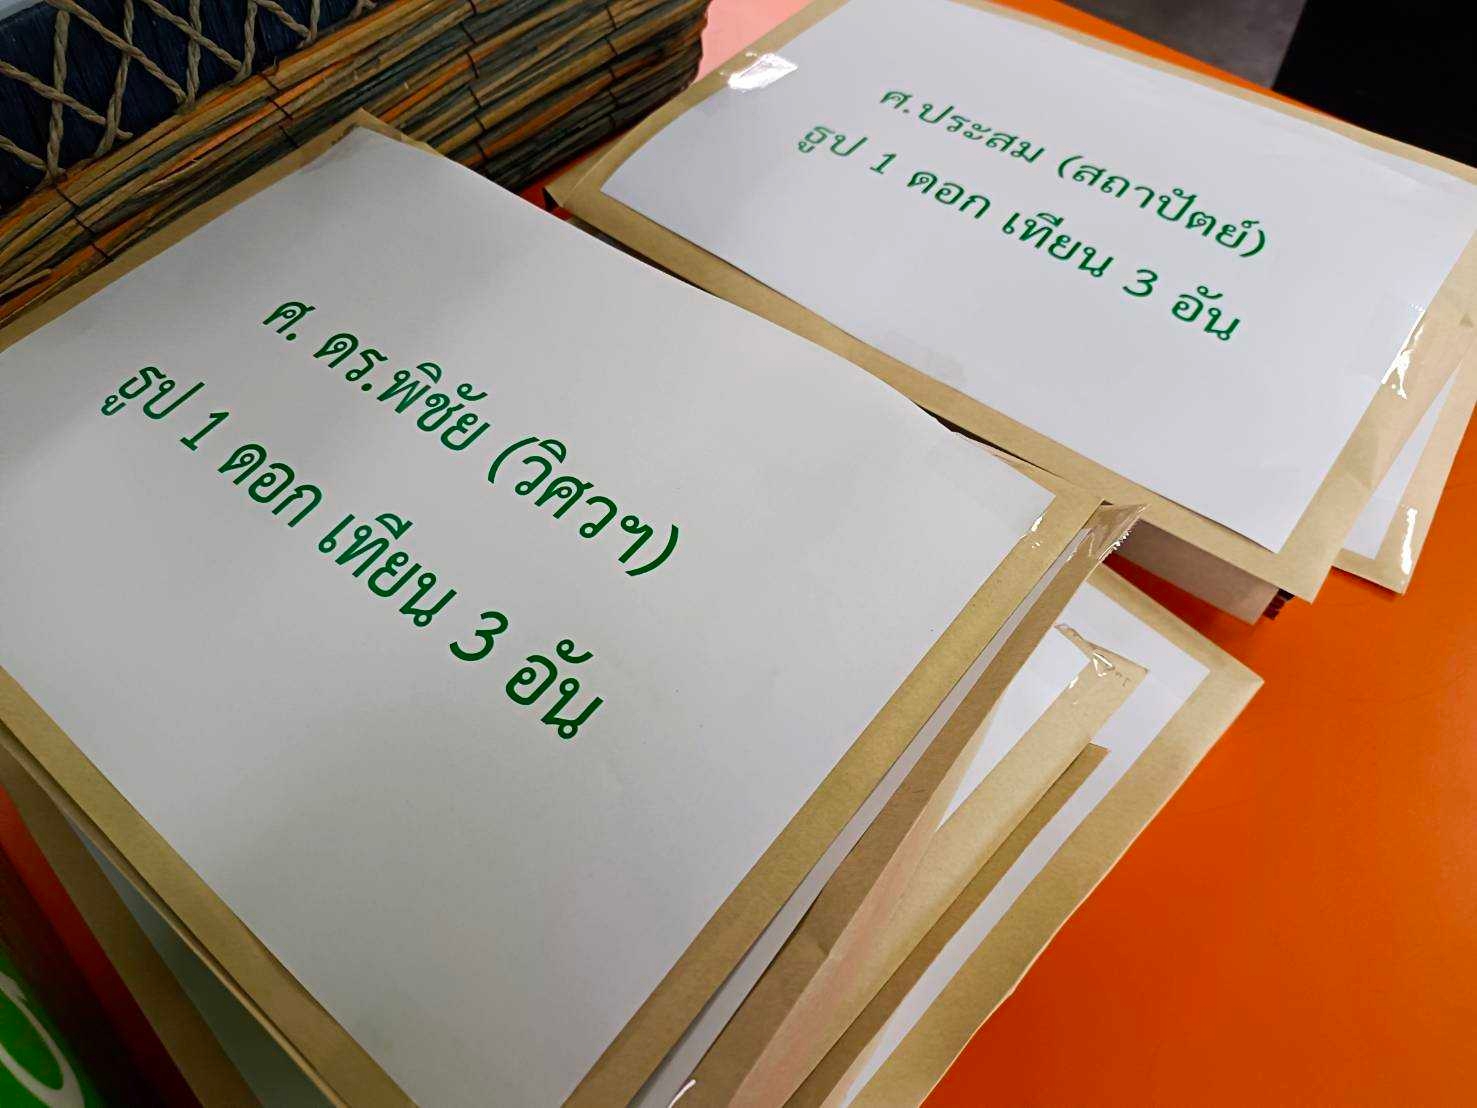 ศ. ดร.พิชัย (วิศวฯ)
ธูป 1 ดอก เทียน 3 อัน
ศ.ประสม (สถาปัตย์)
ธูป 1 ดอก เทียน 3 อัน